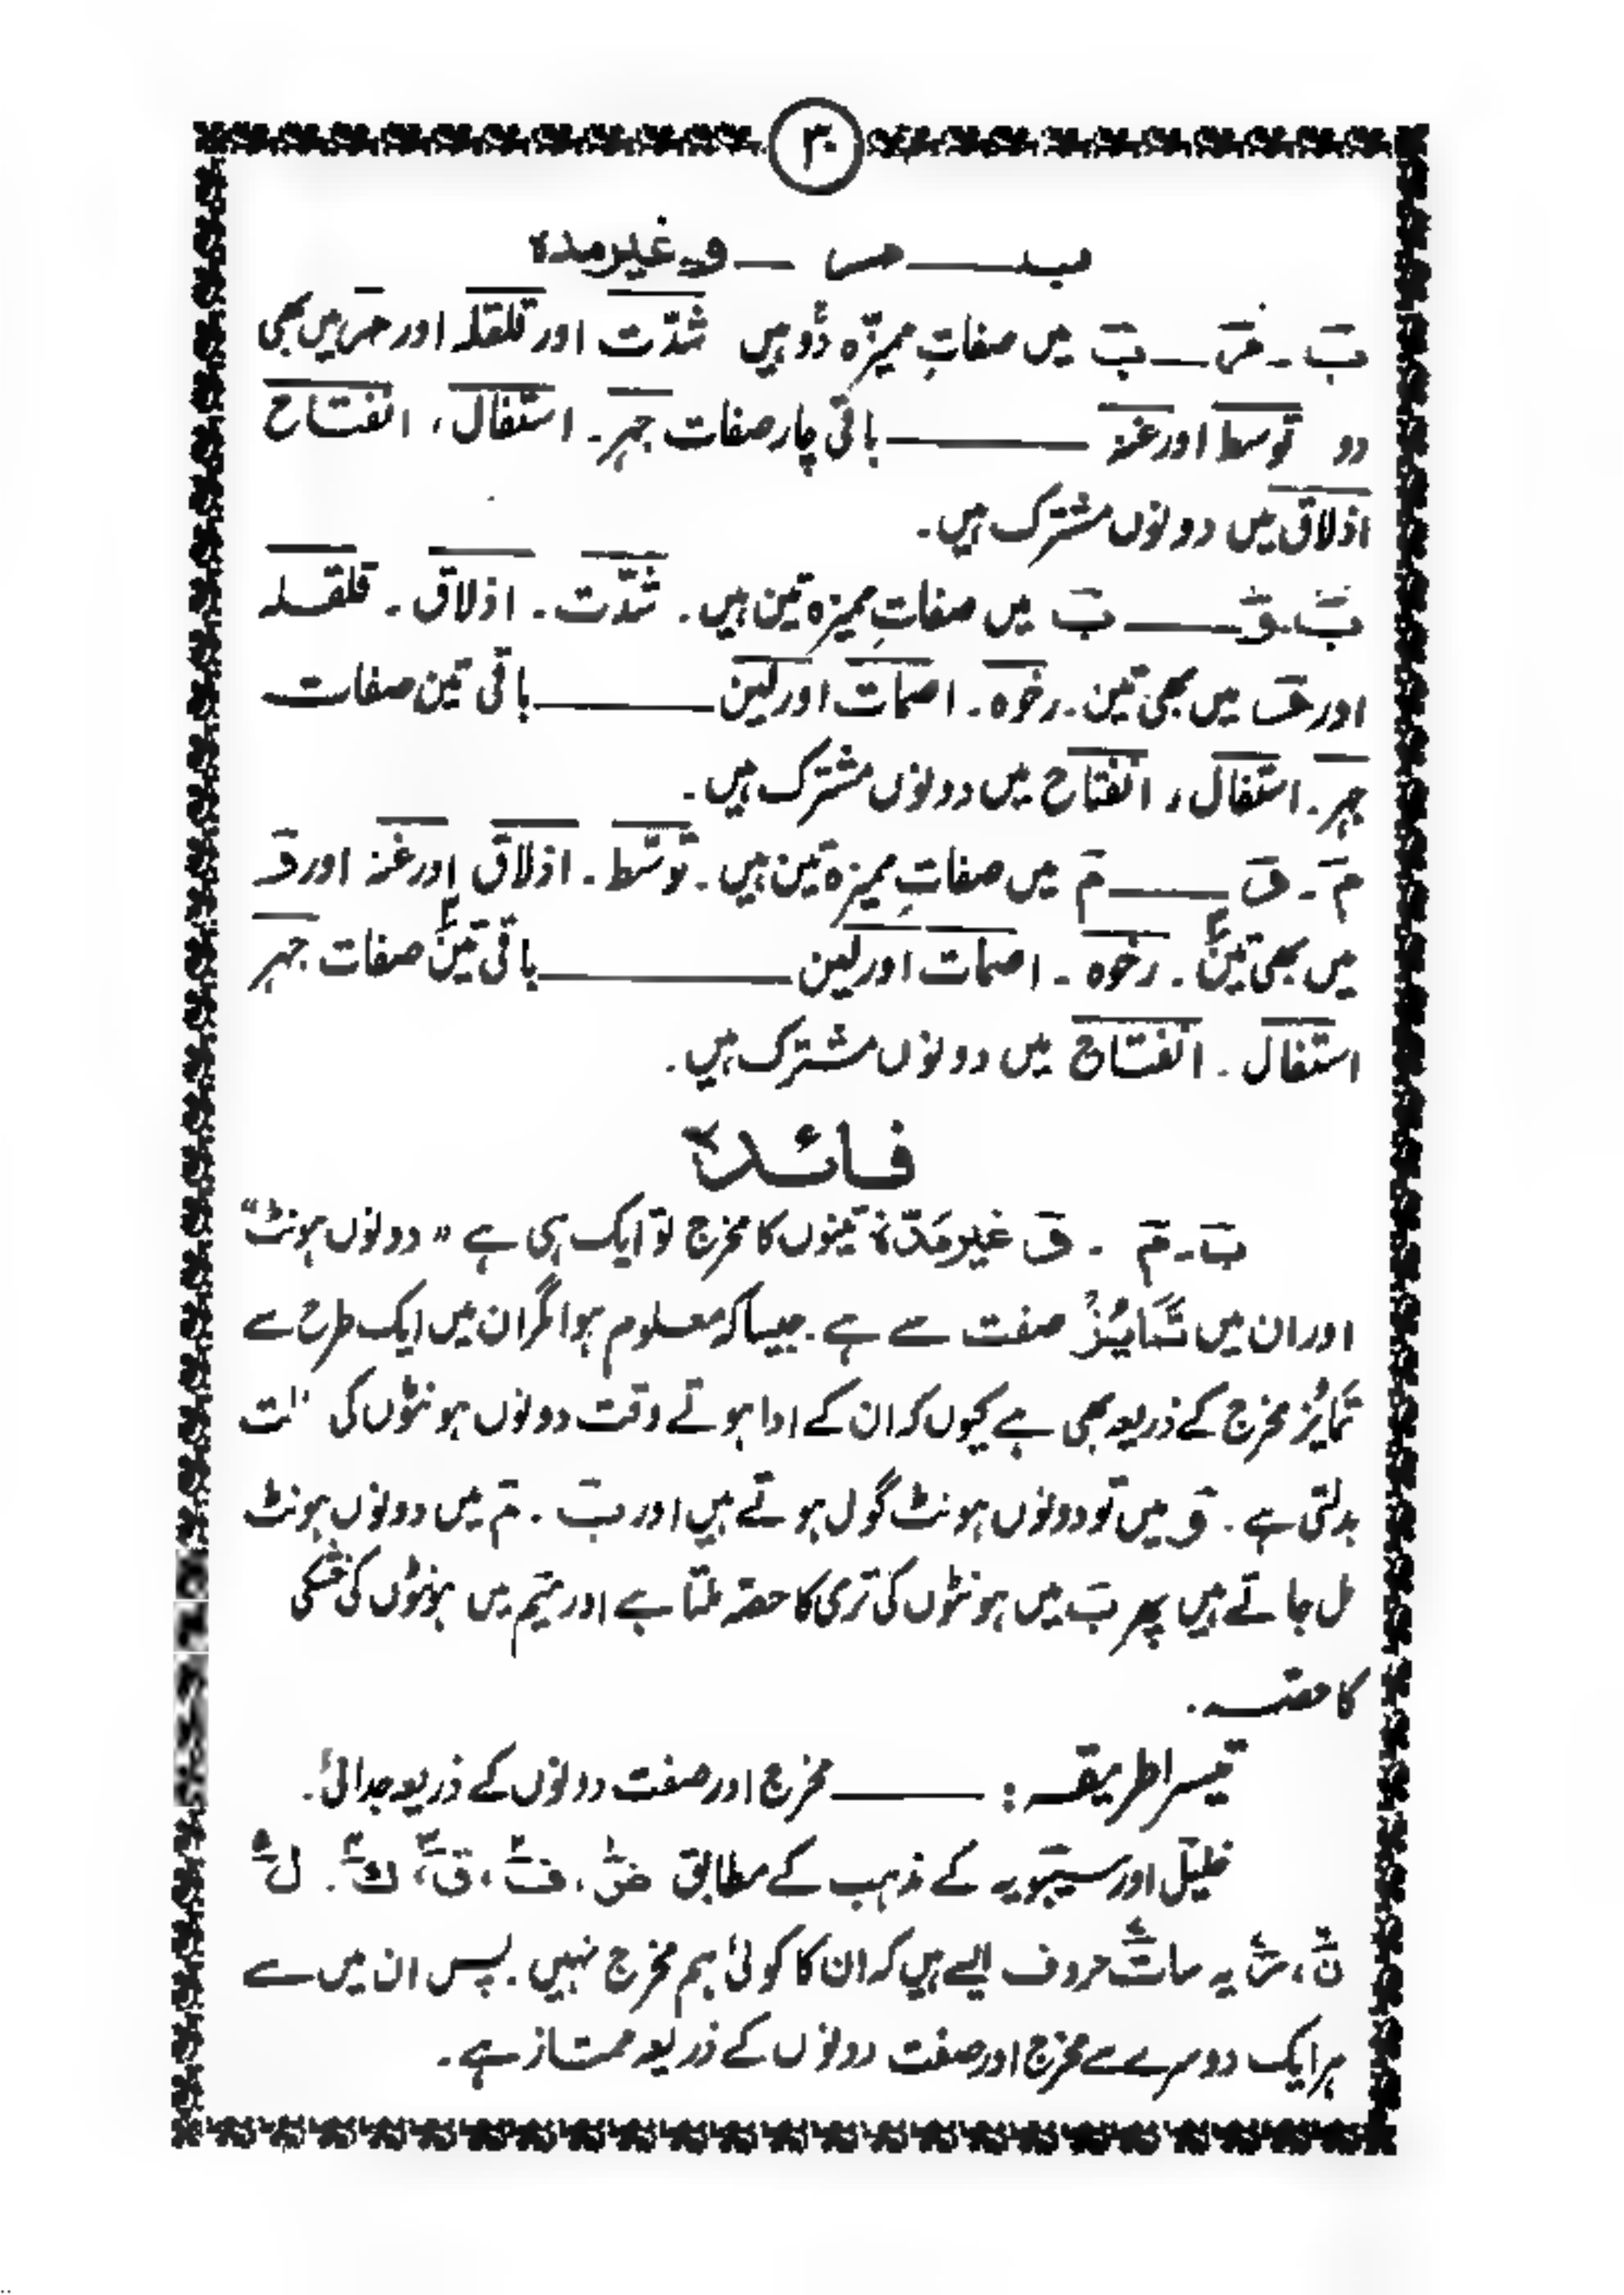 ۳۰
ب ــــ م ــ و غیر مدہ
ب ۔ م ــــ ب میں صفاتِ ممیزہ دو ہیں شدّت اور قلقلہ اور م میں بھی
دو توسط اور غنہ ــــــــ باقی چار صفات جہر ۔ استفال ، انفتاح
اذلاق میں دونوں مشترک ہیں ۔
ب ۔ و ــــ ب میں صفاتِ ممیزہ تین ہیں ۔ شدّت ۔ اذلاق ۔ قلقلہ
اور و میں بھی تین ۔ رخوہ ۔ اصمات اور لین ــــــــ باقی تین صفات
جہر ۔ استفال ، انفتاح میں دونوں مشترک ہیں ۔
م ۔ و ــــ م میں صفاتِ ممیزہ تین ہیں ۔ توسّط ۔ اذلاق اور غنہ اور و
میں بھی تین ۔ رخوہ ۔ اصمات اور لین ــــــــ باقی تین صفات جہر
استفال ۔ انفتاح میں دونوں مشترک ہیں ۔
فائدہ
ب ۔ م ۔ و غیر مدّہ تینوں کا مخرج تو ایک ہی ہے " دونوں ہونٹ "
اور ان میں تَمَایُزْ صفت سے ہے ۔ جیسا کہ معلوم ہوا مگر ان میں ایک طرح سے
تَمایُز مخرج کے ذریعہ بھی ہے کیوں کہ ان کے ادا ہوتے وقت دونوں ہونٹوں کی
بدلتی ہے ۔ و میں تو دونوں ہونٹ گول ہوتے ہیں اور ب ۔ م میں دونوں ہونٹ
مل جاتے ہیں پھر ب میں ہونٹوں کی تری کا حصّہ ملتا ہے اور میم میں ہونٹوں کی خشکی
کا حصہ ۔
تیسرا طریقہ : ــــــــ مخرج اور صفت دونوں کے ذریعہ جدائی ۔
خلیل اور سیبویہ کے مذہب کے مطابق ض ۱ ، ف ۲ ، ق ۳ ، ك ۴ . ل ۵
ن ۶ ، ر ۷ یہ سات حروف ایسے ہیں کہ ان کا کوئی ہم مخرج نہیں . پس ان میں سے
ہر ایک دوسرے سے مخرج اور صفت دونوں کے ذریعہ ممتاز ہے ۔